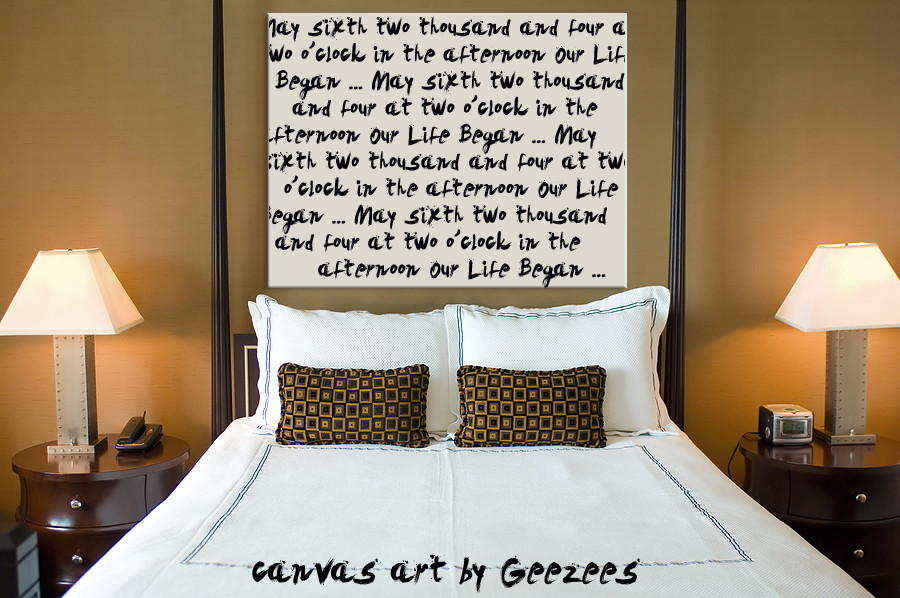 May sixth two thousand and four a
two o'clock in the afternoon Our Lif
Began ... May sixth two thousand
and four at two o'clock in the
afternoon Our Life Began ... May
sixth two thousand and four at two
o'clock in the afternoon Our Life
Began ... May sixth two thousand
and four at two o'clock in the
afternoon Our Life Began ...
canvas art by Geezees